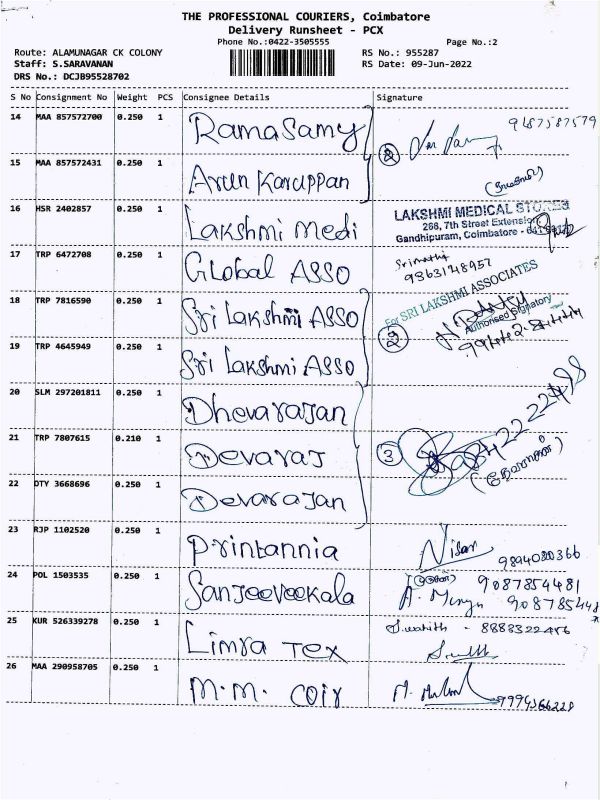 THE PROFESSIONAL COURIERS, Coimbatore
Delivery Runsheet - PCX
Phone No.:0422-3505555
Page No.:2
Route: ALAMUNAGAR CK COLONY
RS No.: 955287
Staff: S.SARAVANAN
RS Date: 09-Jun-2022
DRS No.: DCJB95528702
S No Consignment No Weight PCS Consignee Details Signature
14 MAA 857572700 0.250 1 Ramasamy
15 MAA 857572431 0.250 1 Arun Karuppan
16 HSR 2402857 0.250 1 Lakshmi medi
LAKSHMI MEDICAL STORES
268, 7th Street Extension
Gandhipuram, Coimbatore -
17 TRP 6472708 0.250 1 Global ASSO
Srimathi
9363148957
18 TRP 7816590 0.250 1 Sri Lakshmi ASSO
For SRI LAKSHMI ASSOCIATES
Authorised Signatory
2
19 TRP 4645949 0.250 1 Sri Lakshmi ASSO
20 SLM 297201811 0.250 1 Dhevarajan
21 TRP 7807615 0.210 1 Devaraj
3
22 DTY 3668696 0.250 1 Devarajan
23 RJP 1102520 0.250 1 Printannia
Nisar
24 POL 1503535 0.250 1 Sanjeeveekala
9087854481
25 KUR 526339278 0.250 1 Limra Tex
8883322456
26 MAA 290958705 0.250 1 M.M. Coir